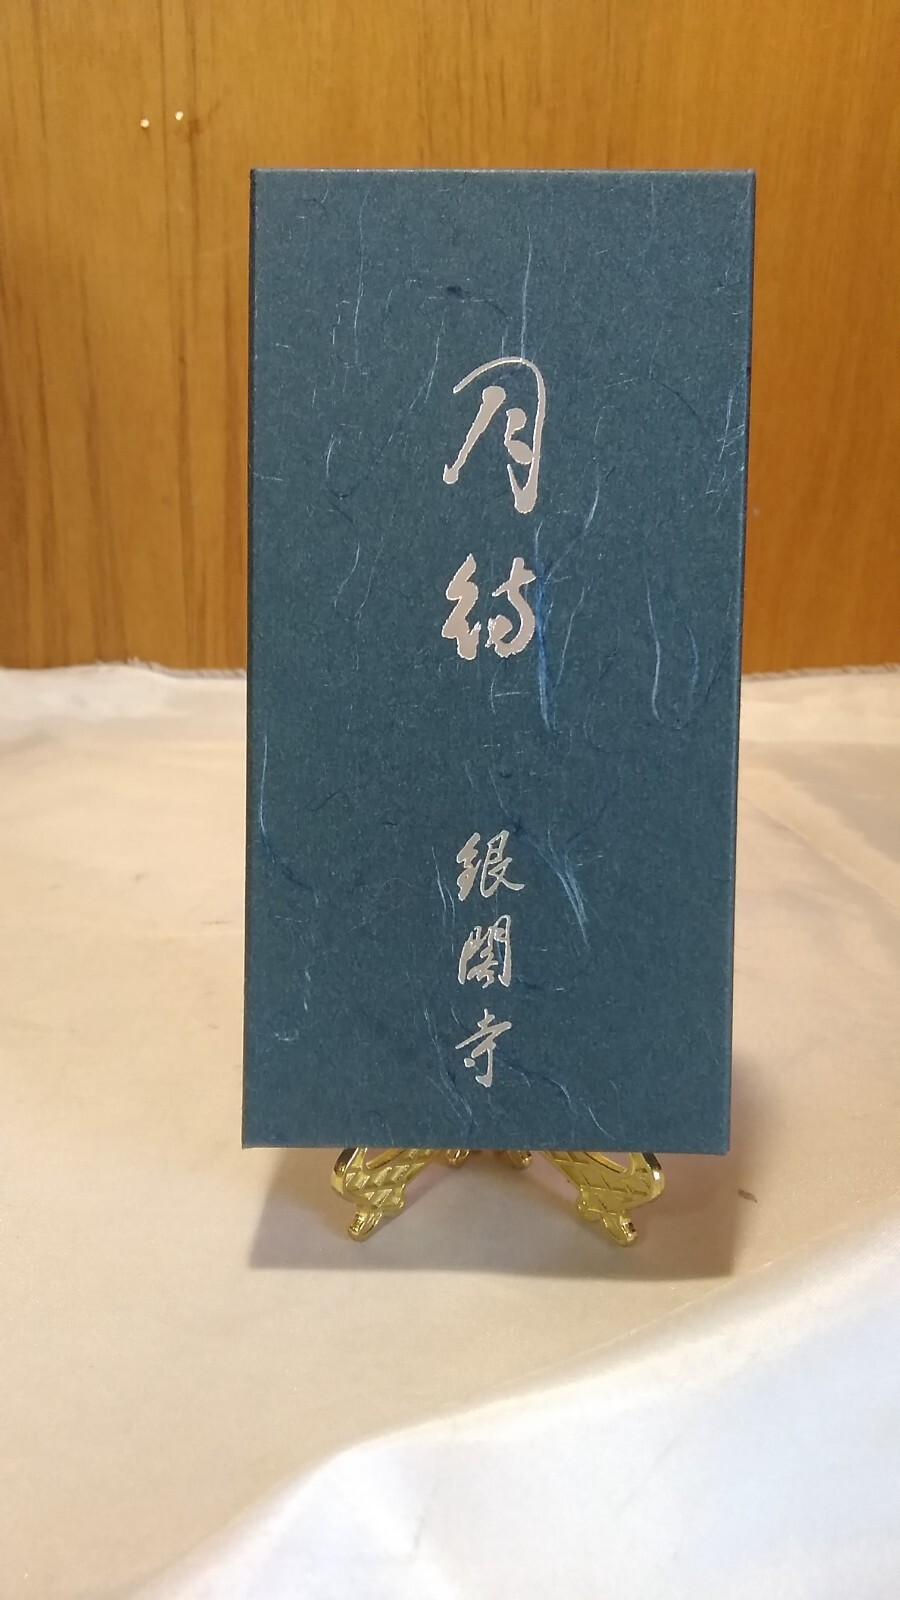 月待
銀閣寺